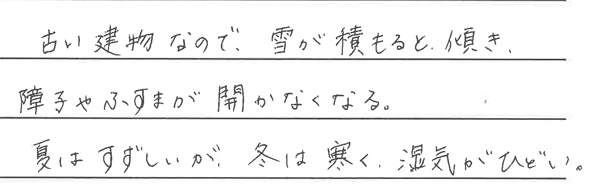 古い建物なので、雪が積もると、傾き、
障子やふすまが開かなくなる。
夏はすずしいが、冬は寒く、湿気がひどい。